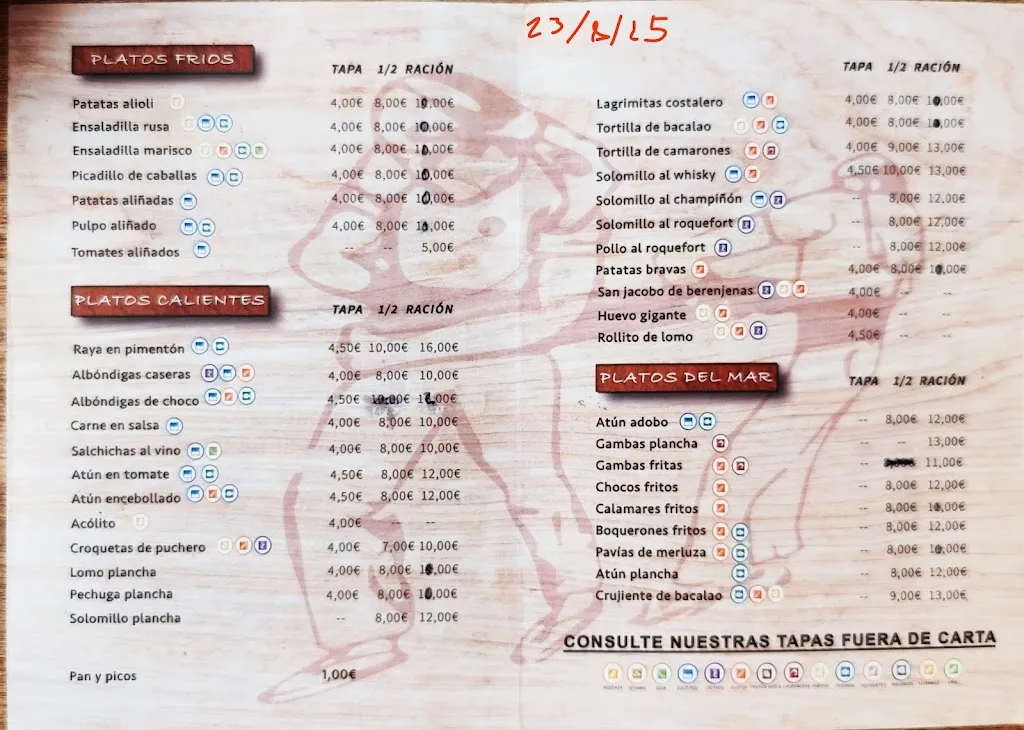 23/8/25
PLATOS FRIOS
TAPA 1/2 RACIÓN
Patatas alioli 4,00€ 8,00€ 10,00€
Ensaladilla rusa 4,00€ 8,00€ 10,00€
Ensaladilla marisco 4,00€ 8,00€ 10,00€
Picadillo de caballas 4,00€ 8,00€ 10,00€
Patatas aliñadas 4,00€ 8,00€ 10,00€
Pulpo aliñado 4,00€ 8,00€
Tomates aliñados -- -- 5,00€
PLATOS CALIENTES
TAPA 1/2 RACIÓN
Raya en pimentón 4,50€ 10,00€ 16,00€
Albóndigas caseras 4,00€ 8,00€ 10,00€
Albóndigas de choco 4,50€
Carne en salsa 4,00€ 8,00€ 10,00€
Salchichas al vino 4,00€ 8,00€ 10,00€
Atún en tomate 4,50€ 8,00€ 12,00€
Atún encebollado 4,50€ 8,00€ 12,00€
Acólito 4,00€ -- --
Croquetas de puchero 4,00€ 7,00€ 10,00€
Lomo plancha 4,00€ 8,00€ 10,00€
Pechuga plancha 4,00€ 8,00€ 10,00€
Solomillo plancha -- 8,00€ 12,00€
Pan y picos 1,00€
TAPA 1/2 RACIÓN
Lagrimitas costalero 4,00€ 8,00€ 10,00€
Tortilla de bacalao 4,00€ 8,00€ 10,00€
Tortilla de camarones 4,00€ 9,00€ 13,00€
Solomillo al whisky 4,50€ 10,00€ 13,00€
Solomillo al champiñón -- 8,00€ 12,00€
Solomillo al roquefort -- 8,00€ 12,00€
Pollo al roquefort -- 8,00€ 12,00€
Patatas bravas 4,00€ 8,00€ 10,00€
San jacobo de berenjenas 4,00€ -- --
Huevo gigante 4,00€ -- --
Rollito de lomo 4,50€ -- --
PLATOS DEL MAR
TAPA 1/2 RACIÓN
Atún adobo -- 8,00€ 12,00€
Gambas plancha -- -- 13,00€
Gambas fritas -- 11,00€
Chocos fritos -- 8,00€ 12,00€
Calamares fritos -- 8,00€ 10,00€
Boquerones fritos -- 8,00€ 12,00€
Pavías de merluza -- 8,00€ 10,00€
Atún plancha -- 8,00€ 12,00€
Crujiente de bacalao -- 9,00€ 13,00€
CONSULTE NUESTRAS TAPAS FUERA DE CARTA